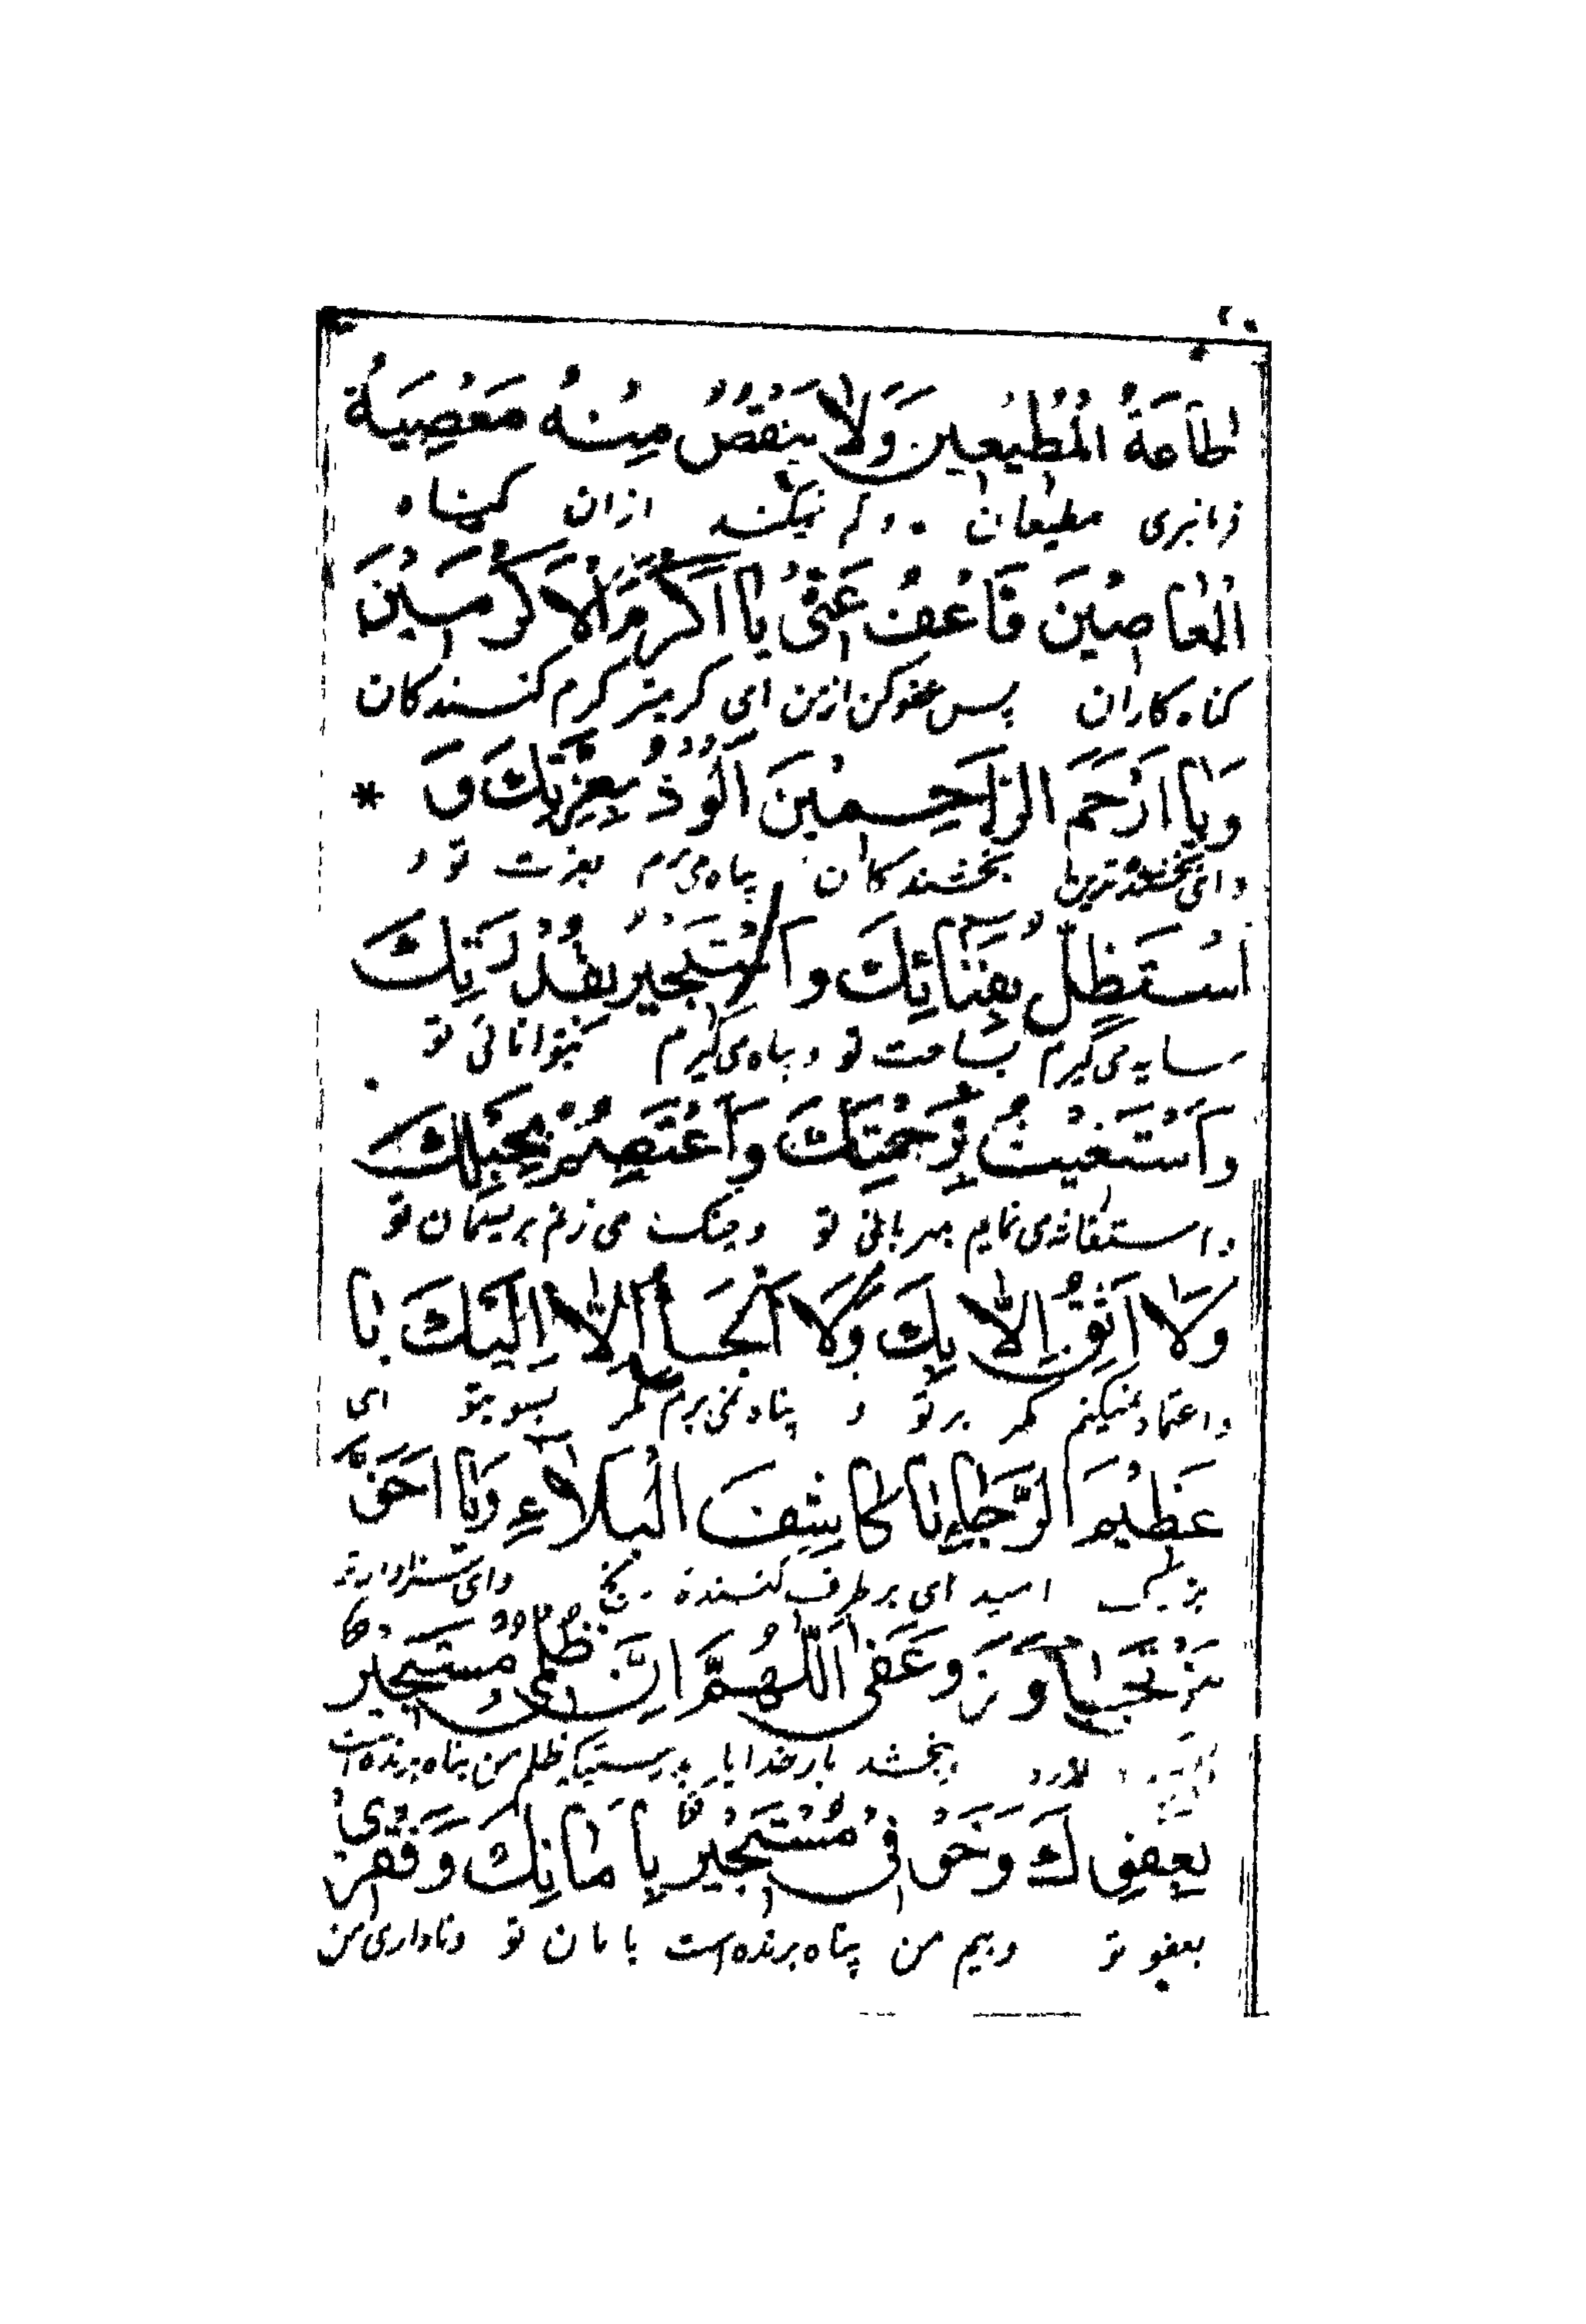 طَاعَةُ الْمُطِيعِينَ وَلَا يَنْقُصُ مِنْهُ مَعْصِيَةُ
فرمانبری مطیعان و کم نمیکند ازان گناه
الْعَاصِينَ فَاعْفُ عَنِّي يَا اَكْرَمَ الْاَكْرَمِينَ
گناه کاران پس عفو کن از من ای کریمتر کرم کنندگان
وَيَا اَرْحَمَ الرَّاحِمِينَ اَلُوذُ بِعِزَّتِكَ وَ *
و ای بخشنده ترین بخشندگان پناه می برم بعزت تو و
اَسْتَظِلُّ بِفِنَائِكَ وَاَسْتَجِيرُ بِقُدْرَتِكَ
سایه می گیرم بساحت تو و پناه می گیرم بتوانائی تو
وَاَسْتَغِيثُ بِرَحْمَتِكَ وَاَعْتَصِمُ بِحَبْلِكَ
و استغاثه می نمایم بمهربانی تو و چنگ می زنم بریسمان تو
وَلَا اَثِقُ اِلَّا بِكَ وَلَا اَلْجَأُ اِلَّا اِلَيْكَ يَا
و اعتماد نمیکنم مگر بر تو و پناه نمی برم مگر بسوی تو ای
عَظِيمَ الرَّجَاءِ يَا كَاشِفَ الْبَلَاءِ وَيَا اَحَقَّ
بزرگ امید ای برطرف کننده رنج و ای سزاوارتر
مَنْ تَجَاوَزَ وَعَفٰى اَللّٰهُمَّ اِنَّ ظُلْمِي مُسْتَجِيرٌ
بخشد بار خدایا بدرستیکه ظلم من پناه برنده است
بِعَفْوِكَ وَخَوْفِي مُسْتَجِيرٌ بِاَمَانِكَ وَفَقْرِي
بعفو تو و بیم من پناه برنده است بامان تو و ناداری من